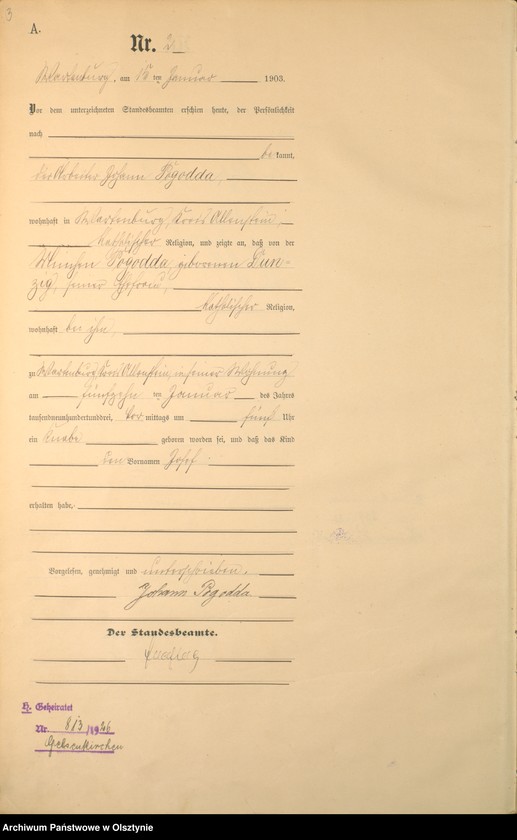 3
A.
Nr.
Wartenburg, am 15 ten Januar 1903.
Vor dem unterzeichneten Standesbeamten erschien heute, der Persönlichkeit
nach
be kannt,
der Arbeiter Johann Pogodda,
wohnhaft in Wartenburg, Kreis Allenstein,
katholischer Religion, und zeigte an, daß von der
Pogodda, geborenen Dan-
zig, seiner Ehefrau,
katholischer Religion,
wohnhaft bei ihm,
zu Wartenburg Kreis Allenstein, in seiner Wohnung
am fünfzehn ten Januar des Jahres
tausendneunhundertunddrei, Vor mittags um fünf Uhr
ein Knabe geboren worden sei, und daß das Kind
den Vornamen Josef
erhalten habe.
Vorgelesen, genehmigt und unterschrieben.
Johann Pogodda
Der Standesbeamte.
H. Geheiratet
Nr. 813/1926
Gelsenkirchen
Archiwum Państwowe w Olsztynie